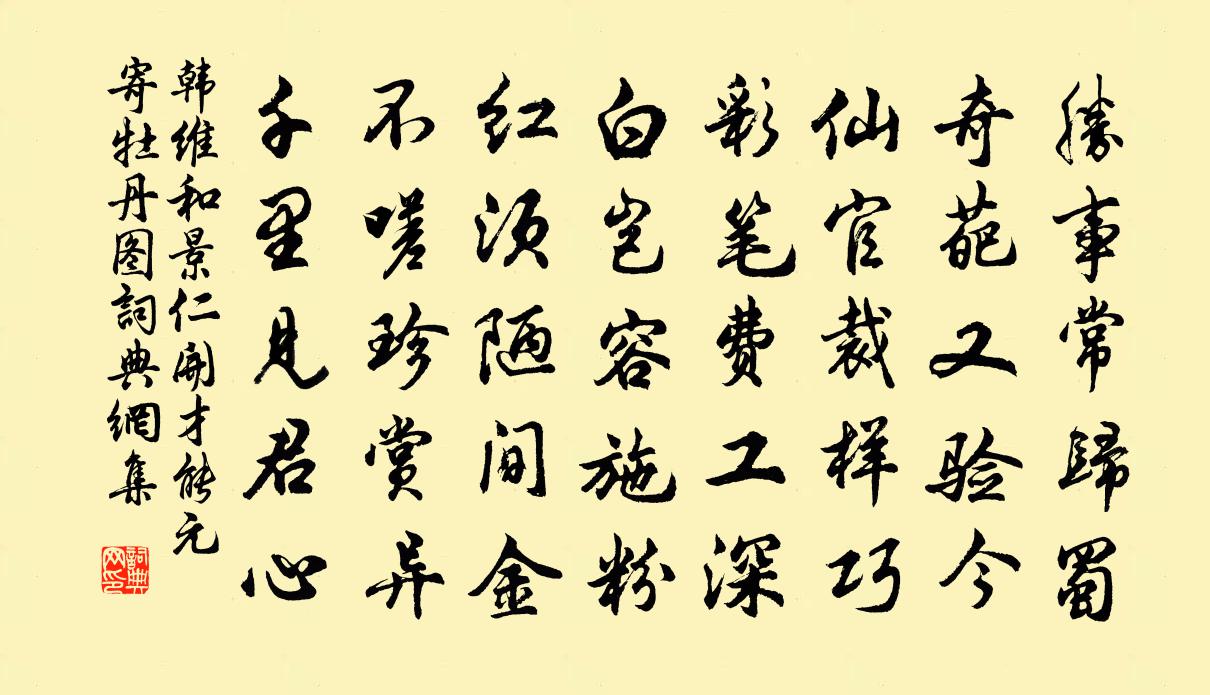 勝事常歸蜀
奇葩又验今
仙官裁样巧
彩笔费工深
白岂容施粉
红须陋间金
不嗟珍赏异
千里见君心
韩维和景仁開才能元
寄牡丹图詞典網集
詞典网印